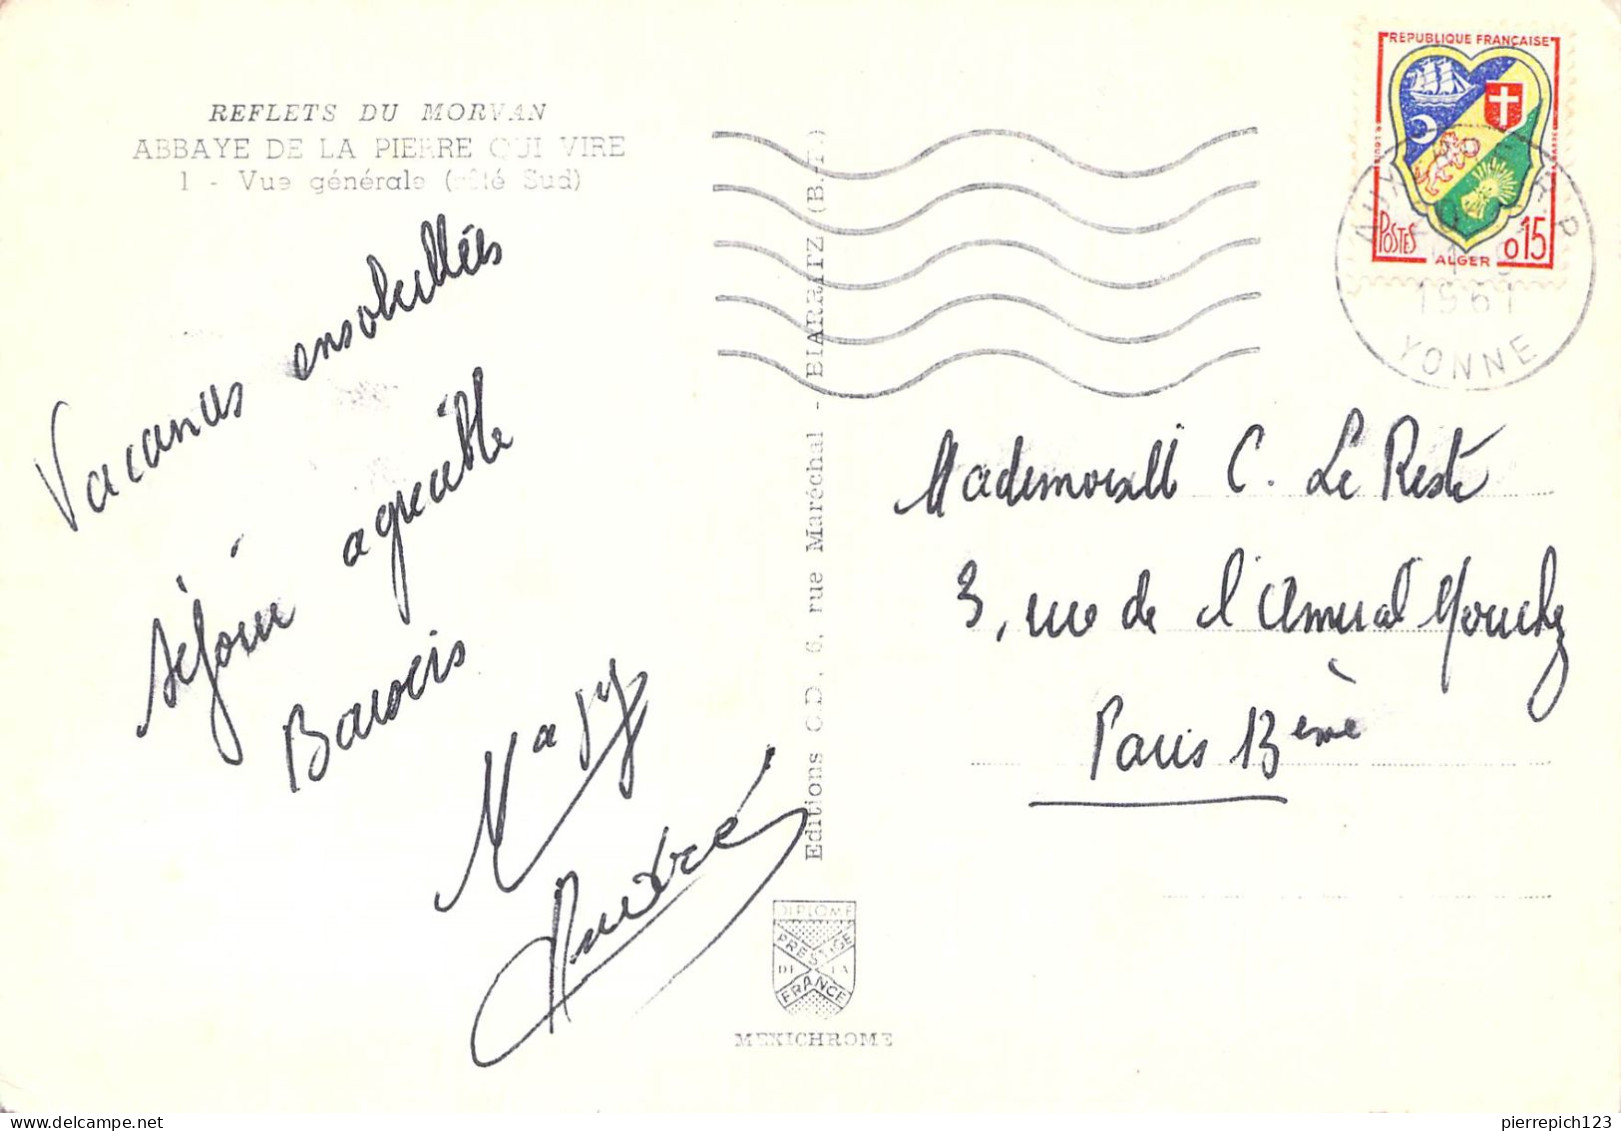 REFLETS DU MORVAN
ABBAYE DE LA PIERRE QUI VIRE
1 - Vue générale (côté Sud)
Vacances ensoleillées
séjour agréable
Baisers
Magy
André
Editions C.D. 6, rue Maréchal - BIARRITZ (B.-P.)
DIPLOME
PRESTIGE
DE LA
FRANCE
MEXICHROME
REPUBLIQUE FRANÇAISE
POSTES
ALGER
0,15
1961
YONNE
Mademoiselle C. Le Reste
3, rue de l'Amiral Mouchez
Paris 13ème
pierrepich123